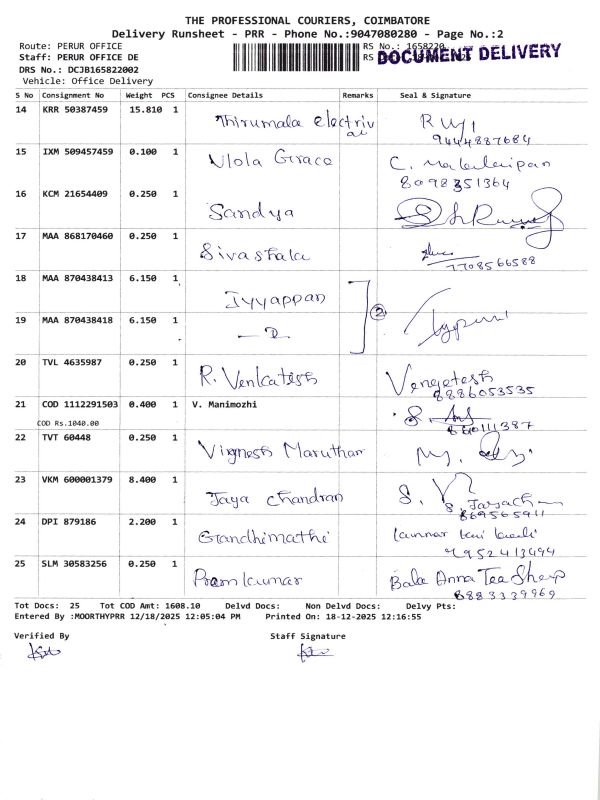 THE PROFESSIONAL COURIERS, COIMBATORE
Delivery Runsheet - PRR - Phone No.:9047080280 - Page No.:2
Route: PERUR OFFICE RS No.: 1658220
Staff: PERUR OFFICE DE RS DOCUMENT DELIVERY
DRS No.: DCJB165822002
Vehicle: Office Delivery
S No Consignment No Weight PCS Consignee Details Remarks Seal & Signature
14 KRR 50387459 15.810 1 Thirumala electriv
9444887684
15 IXM 509457459 0.100 1 Vlola Grace C.
8098351364
16 KCM 21654409 0.250 1 Sandya
17 MAA 868170460 0.250 1 Sivashala
7708566588
18 MAA 870438413 6.150 1 Iyyappan
2
19 MAA 870438418 6.150 1
20 TVL 4635987 0.250 1 R. Venkatesh Vengetesh
8886053535
21 COD 1112291503 0.400 1 V. Manimozhi
COD Rs.1040.00
22 TVT 60448 0.250 1 Vignesh Maruthan
23 VKM 600001379 8.400 1 Jaya Chandran S.
869565911
24 DPI 879186 2.200 1 Grandhimathi
9952413494
25 SLM 30583256 0.250 1 Premkumar Bala Anna Tea Shop
8883339969
Tot Docs: 25 Tot COD Amt: 1608.10 Delvd Docs: Non Delvd Docs: Delvy Pts:
Entered By :MOORTHYPRR 12/18/2025 12:05:04 PM Printed On: 18-12-2025 12:16:55
Verified By Staff Signature